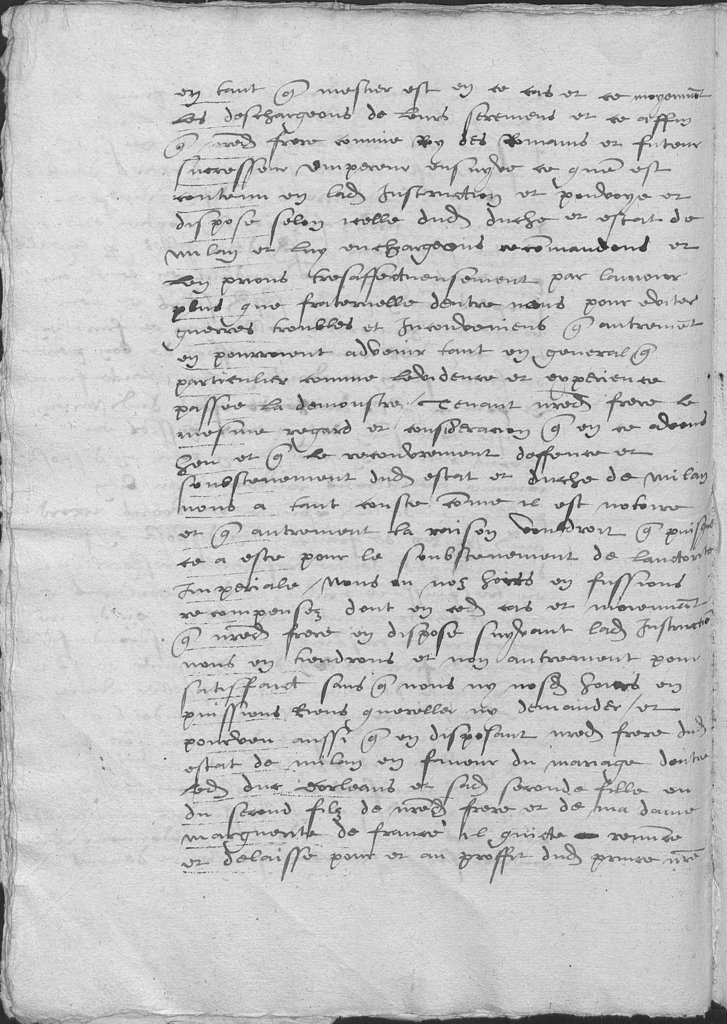 en tant q̃ mestier est en ce cas et ce moyennãt
les deschargeons de leurs seremens et ce affin
q̃ nred frere comme Roy des Romains et futeur
successeur Empereur ensuyve ce quen est
contenu en lad Instruction et pourvoye et
dispose selon icelle dud duche et estat de
milan et luy enchargeons recomandons et
len prions tresaffectueusement par lamour
plus que fraternelle dentre nous pour eviter
guerres troubles et Inconveniens q̃ autremẽt
en pourroient advenir tant en general q̃
particulier comme levidence et experience
passee la demonstre Tenant nred frere le
mesme regard et consideracion q̃ en ce advons
heu et q̃ le recouvrement deffence et
soubstenement dud estat et duche de milan
nous a tant couste cõme il est notoire
et q̃ autrement la raison vouldroit q̃ puisque
ce a este pour le soubstenement de lauctorite
Imperiale Nous ou noz hoirs en fussions
recompensez dont en ced cas et moiennãt
q̃ nred frere en dispose suyvant lad Instructiõ
nous en tiendrons et non autrement pour
satisfaict sans q̃ nous ny nosd hoirs en
puissions Riens quereller ny demander et
pourveu aussi q̃ en disposant nred frere dud
estat de milan en faveur du mariage dentre
led duc dorleans et sad seconde fille ou
du second filz de nred frere et de ma dame
marguerite de france il quicte renunce
et delaisse pour et au proffit dud prince nre